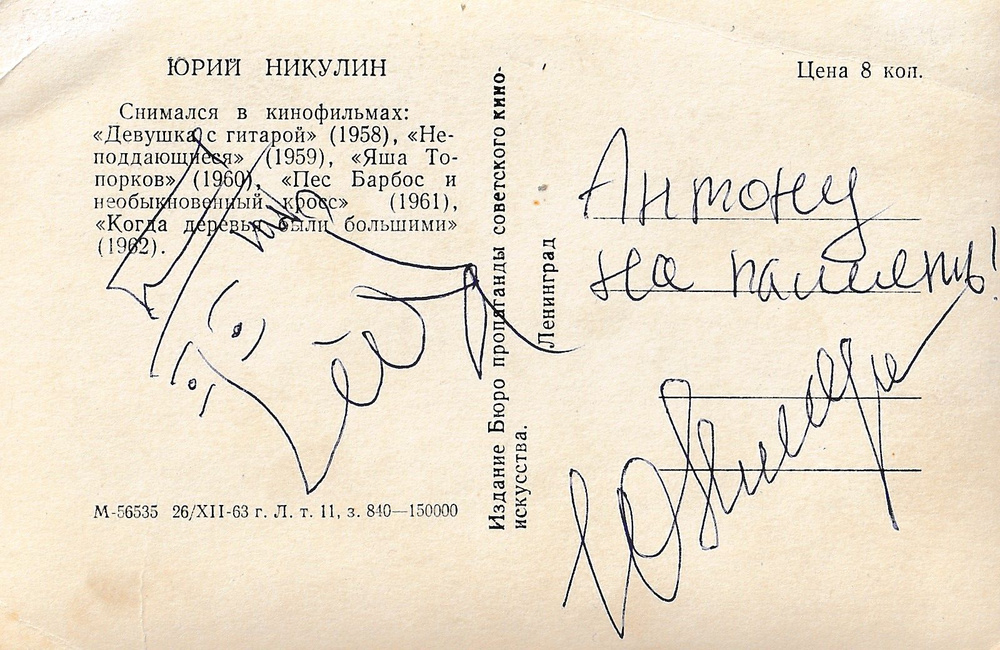 ЮРИЙ НИКУЛИН
Снимался в кинофильмах:
«Девушка с гитарой» (1958), «Не-
поддающиеся» (1959), «Яша То-
порков» (1960), «Пес Барбос и
необыкновенный кросс» (1961),
«Когда деревья были большими»
(1962).
М-56535 26/XII-63 г. Л. т. 11, з. 840—150000
Издание Бюро пропаганды советского кино-
искусства.
Ленинград
Цена 8 коп.
Антону
на память!